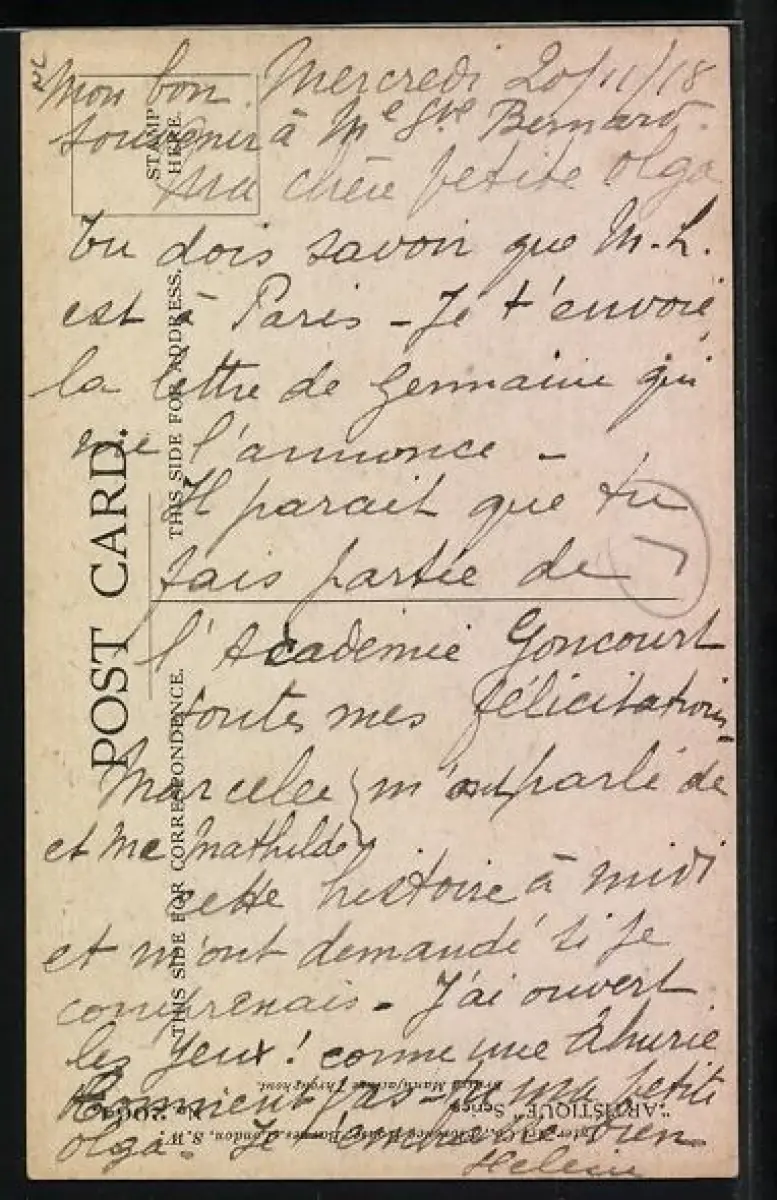 Mon bon Mercredi 20/11/18
souvenir à Me Gve Bernard.
Ma chère petite Olga
Tu dois savoir que M. L.
est à Paris - Je t'envoie
la lettre de Germaine qui
me l'annonce -
Il parait que tu
fais partie de
l'Académie Goncourt
toutes mes félicitations -
Marcelle } m'ont parlé de
et Me Mathilde
cette histoire à midi
et m'ont demandé si je
comprenais - J'ai ouvert
les yeux! comme une ahurie
pas - tu ma petite
Olga - Je t'embrasse bien
Helene
POST CARD.
STAMP
HERE.
THIS SIDE FOR ADDRESS.
THIS SIDE FOR CORRESPONDENCE.
"ARTISTIQUE" Series
No 2006
British Manufacture Throughout.
Inter-Art Co., House, Barnes, London, S.W.